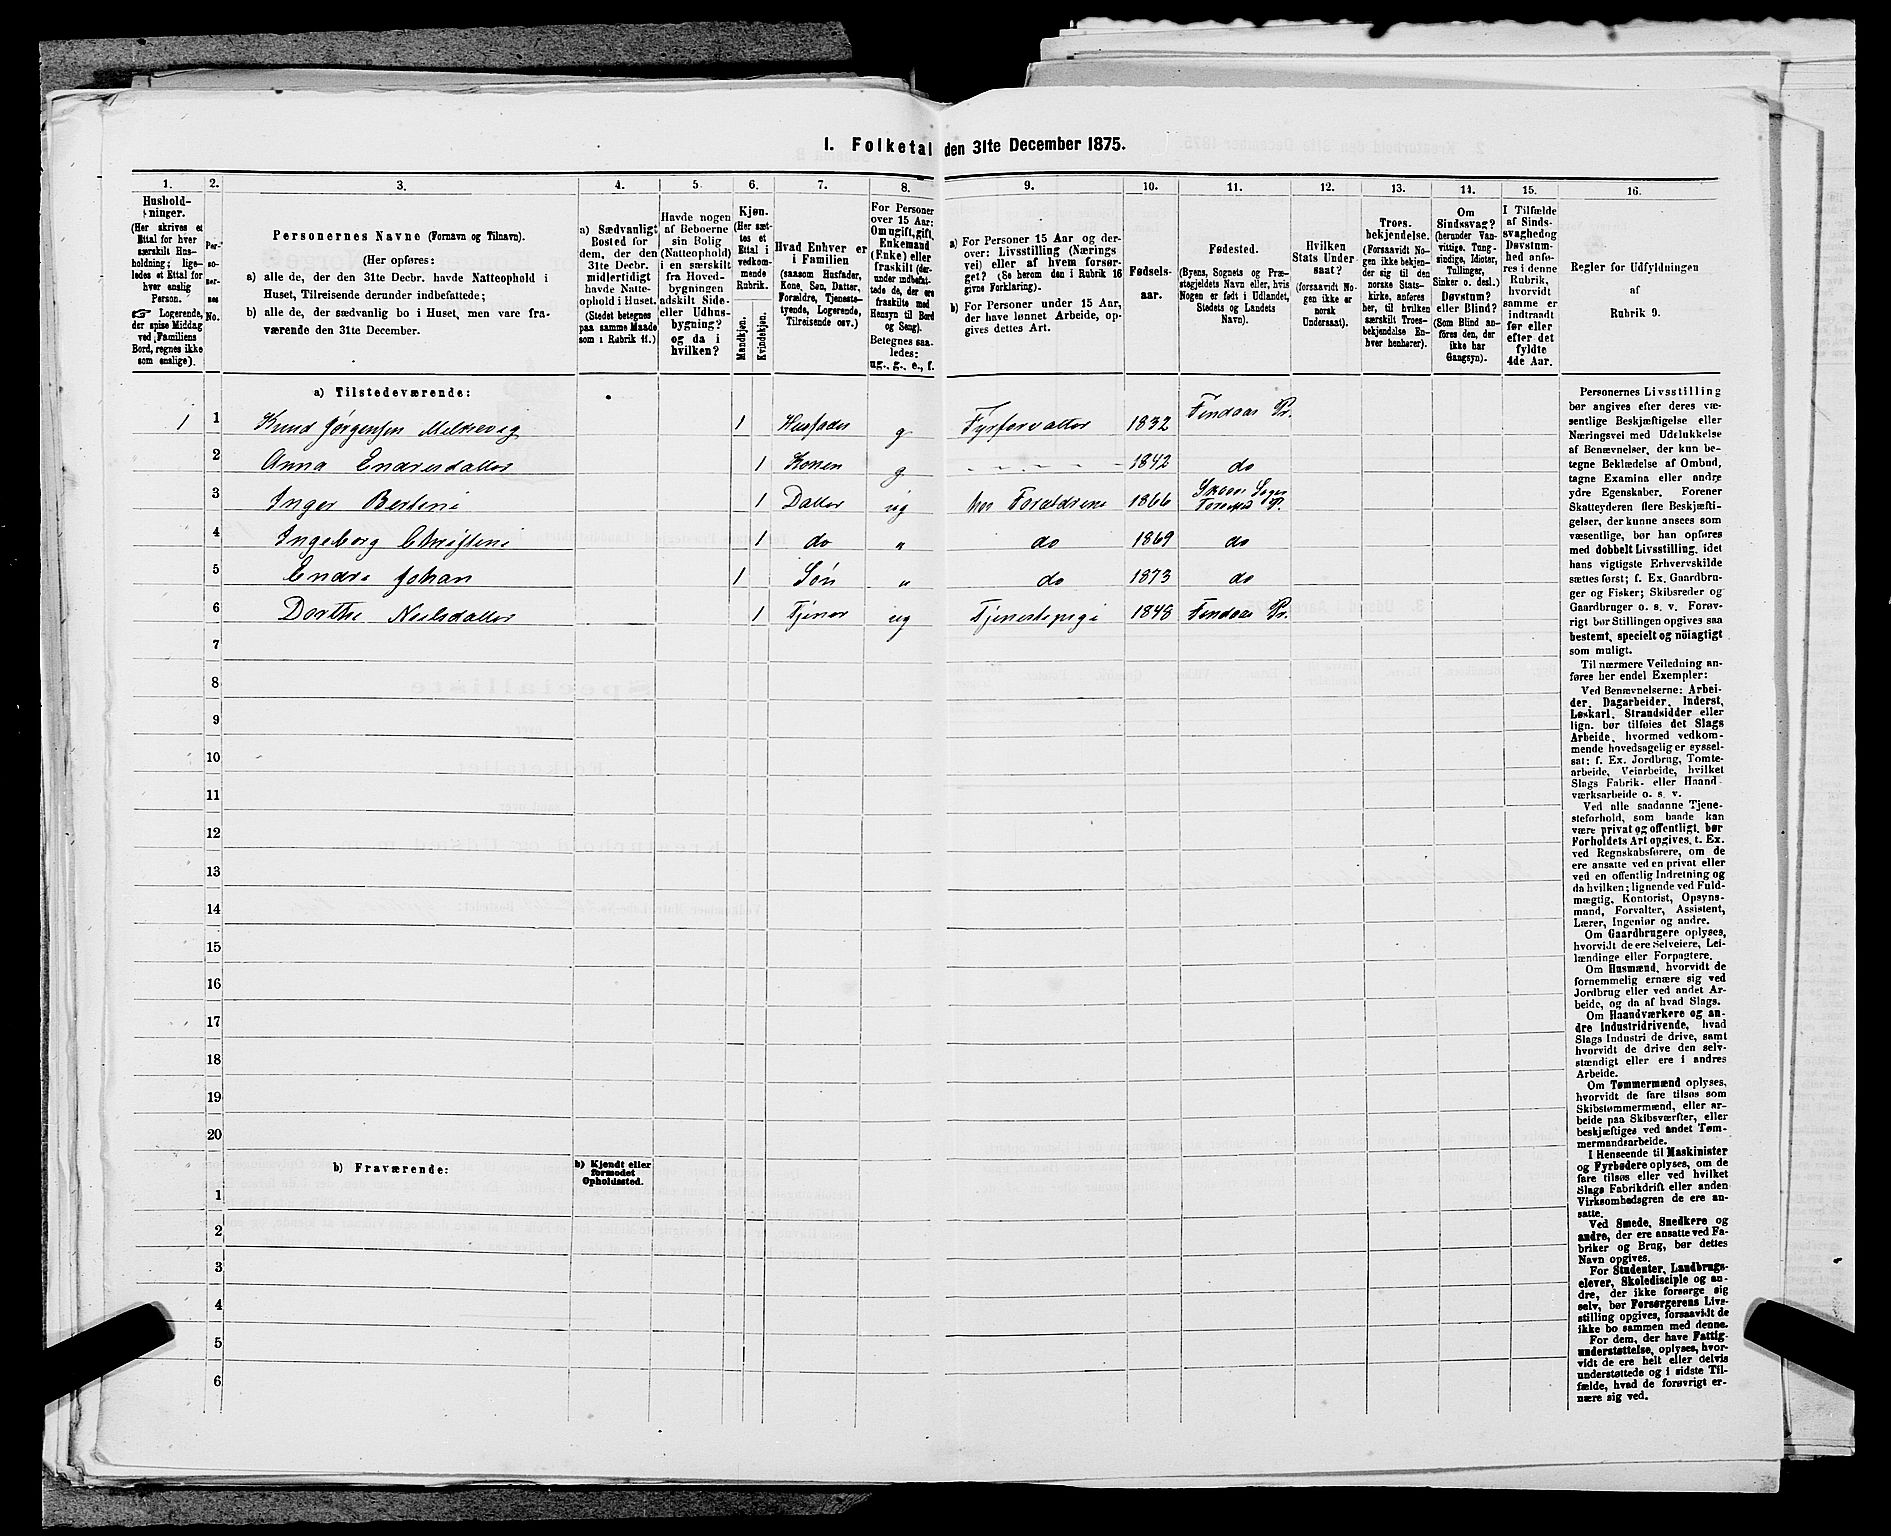 I. Folketal den 31te December 1875.
1.
2.
3.
4.
5.
6.
7.
8.
9.
10.
11.
12.
13.
14.
15.
16.
Hushold-
ninger.
(Her skrives et
Ettal for hver
særskilt Hus-
holdning; lige-
ledes et Ettal for
hver enslig
Person.
☞ Logerende,
der spise Middag
ved Familiens
Bord, regnes ikke
som enslige).
Per-
so-
ner-
nes
No.
Personernes Navne (Fornavn og Tilnavn).
(Her opføres:
a) alle de, der den 31te Decbr. havde Natteophold i
Huset, Tilreisende derunder indbefattede;
b) alle de, der sædvanlig bo i Huset, men vare fra-
værende den 31te December.
a) Sædvanligt
Bosted for
dem, der den
31te Decbr.
midlertidigt
havde Natte-
ophold i Huset.
(Stedet betegnes
paa samme Maade
som i Rubrik 11.)
Havde nogen
af Beboerne
sin Bolig
(Natteophold)
i en særskilt
fra Hoved-
bygningen
adskilt Side-
eller Udhus-
bygning?
og da i
hvilken?
Kjøn.
(Her sæt-
tes et
Ettal i
vedkom-
mende
Rubrik.
Mandkjøn.
Kvindekjøn.
Hvad Enhver er
i Familien
(saasom Husfader,
Kone, Søn, Datter,
Forældre, Tjeneste-
tyende, Logerende,
Tilreisende osv.)
For Personer
over 15 Aar:
Om ugift, gift,
Enkemand
(Enke) eller
fraskilt (der-
under indbefat-
tede de, der ere
fraskilte med
Hensyn til Bord
og Seng).
Betegnes saa-
ledes:
ug., g., e., f.
a) For Personer 15 Aar og der-
over: Livsstilling (Nærings
vei) eller af hvem forsør-
get? (Se herom den i Rubrik 16
givne Forklaring).
b) For Personer under 15 Aar,
der have lønnet Arbeide, op-
gives dettes Art.
Fødsels-
aar.
Fødested.
(Byens, Sognets og Præ-
stegjeldets Navn eller, hvis
Nogen er født i Udlandet,
Stedets og Landets
Navn).
Hvilken
Stats Under
saat?
(forsaavidt No-
gen ikke er
norsk
Undersaat).
Troes-
bekjendelse.
(Forsaavidt No-
gen ikke bekjen-
der sig til den
norske Stats-
kirke, anføres
her, til hvilken
særskilt Troes-
bekjendelse En-
hver henhører).
Om
Sindssvag?
(herunder Van-
vittige, Tung-
sindige, Idioter,
Tullinger,
Sinker o. desl.)
Døvstum?
eller Blind?
(Som Blind an-
føres den, der
ikke har
Gangsyn).
I Tilfælde
af Sinds-
svaghedog
Døvstum-
hed anfø-
res i denne
Rubrik,
hvorvidt
samme er
indtraadt
før eller
efter det
fyldte
4de Aar.
Regler for Udfyldningen
af
Rubrik 9.
a) Tilstedeværende:
1 1 Knud Jørgensen Melkevig 1 Husfader g Fyrforvalter 1832 Findaas Pr.
2 Anna Endresdatter 1 Konen g 1842 do
3 Inger Bertine 1 Datter ug hos Forældrene 1866
4 Ingeborg Christine 1 do „ do 1869 do
5 Endre Johan 1 Søn „ do 1873 do
6 Dorthe Neilsdatter 1 Tjener ug Tjenestepige 1848 Findaas Pr.
7
8
9
10
11
12
13
14
15
16
17
18
19
20
b) Fraværende:
b) Kjendt eller
formodet
Opholdssted.
1
2
3
4
5
6
Personernes Livsstilling
bør angives efter deres væ-
sentlige Beskjæftigelse eller
Næringsvei med Udelukkelse
af Benævnelser, der kun be-
tegne Beklædelse af Ombud,
tagne Examina eller andre
ydre Egenskaber. Forener
Skatteyderen flere Beskjæfti-
gelser, der kunne ansees som
væsentlige, bør han opføres
med dobbelt Livsstilling, idet
hans vigtigste Erhvervskilde
sættes først; f. Ex. Gaardbru-
ger og Fisker; Skibsreder og
Gaardbruger o. s. v. Forøv-
rigt bør Stillingen opgives saa
bestemt, specielt og nöiagtigt
som muligt.
Til nærmere Veiledning an-
føres her endel Exempler:
Ved Benævnelserne: Arbei-
der, Dagarbeider, Inderst,
Løskarl, Strandsidder eller
lign. bør tilføies det Slags
Arbeide, hvormed vedkom-
mende hovedsagelig er syssel-
sat: f. Ex. Jordbrug, Tomte-
arbeide, Veiarbeide, hvilket
Slags Fabrik- eller Haand
værksarbeide o. s. v.
Ved alle saadanne Tjene-
steforhold, som baade kan
være privat og offentligt, bør
Forholdets Art opgives, t. Ex.
ved Regnskabsførere, om de
ere ansatte ved en privat eller
ved en offentlig Indretning og
da hvilken; lignende ved Fuld-
mægtig, Kontorist, Opsyns-
mand, Forvalter, Assistent,
Lærer, Ingeniør og andre.
Om Gaardbrugere oplyses,
hvorvidt de ere Selveiere, Lei-
lændinge eller Forpagtere.
Om Husmænd, hvorvidt de
fornemmelig ernære sig ved
Jordbrug eller ved andet Ar-
beide, og da af hvad Slags.
Om Haandværkere og an-
dre Industridrivende, hvad
Slags Industri de drive, samt
hvorvidt de drive den selv-
stændigt eller ere i andres
Arbeide.
Om Tømmermænd oplyses,
hvorvidt de fare tilsøs som
Skibstømmermænd, eller ar-
beide paa Skibsværfter, eller
beskjæftiges ved andet Tøm-
mermandsarbeide.
I Henseende til Maskinister
og Fyrbødere oplyses, om de
fare tilsøs eller ved hvilket
Slags Fabrikdrift eller anden
Virksomhedsgren de ere an-
satte.
Ved Smede, Snedkere og
andre, der ere ansatte ved Fa-
briker og Brug, bør dettes
Navn opgives.
For Studenter, Landbrugs-
elever, Skoledisciple og an-
dre, der ikke forsørge sig
selv, bør Forsørgerens Livs-
stilling opgives, forsaavidt de
ikke bo sammen med denne.
For dem, der have Fattig-
understøttelse, oplyses, hvor-
vidt de ere helt eller delvis
understøttede og i sidste Til-
fælde, hvad de forøvrigt er-
nære sig ved.